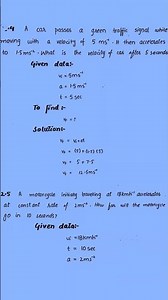 2.4 A car passes a green traffic signal while
moving with a velocity of 5 ms⁻¹. It then accelerates
to 1.5 ms⁻². What is the velocity of car after 5 seconds
Given data:-
u = 5ms⁻¹
a = 1.5 ms⁻²
t = 5 sec
To find :-
v = ?
Solution:-
v = u+at
v = (5) + (1.5) (5)
v = 5 + 7.5
v = 12.5 ms⁻¹
2.5 A motorcycle initially travelling at 18kmh⁻¹ accelerates
at constant rate of 2ms⁻². How far will the motorcycle
go in 10 seconds?
Given data:-
u = 18kmh⁻¹
t = 10 sec
a = 2ms⁻²